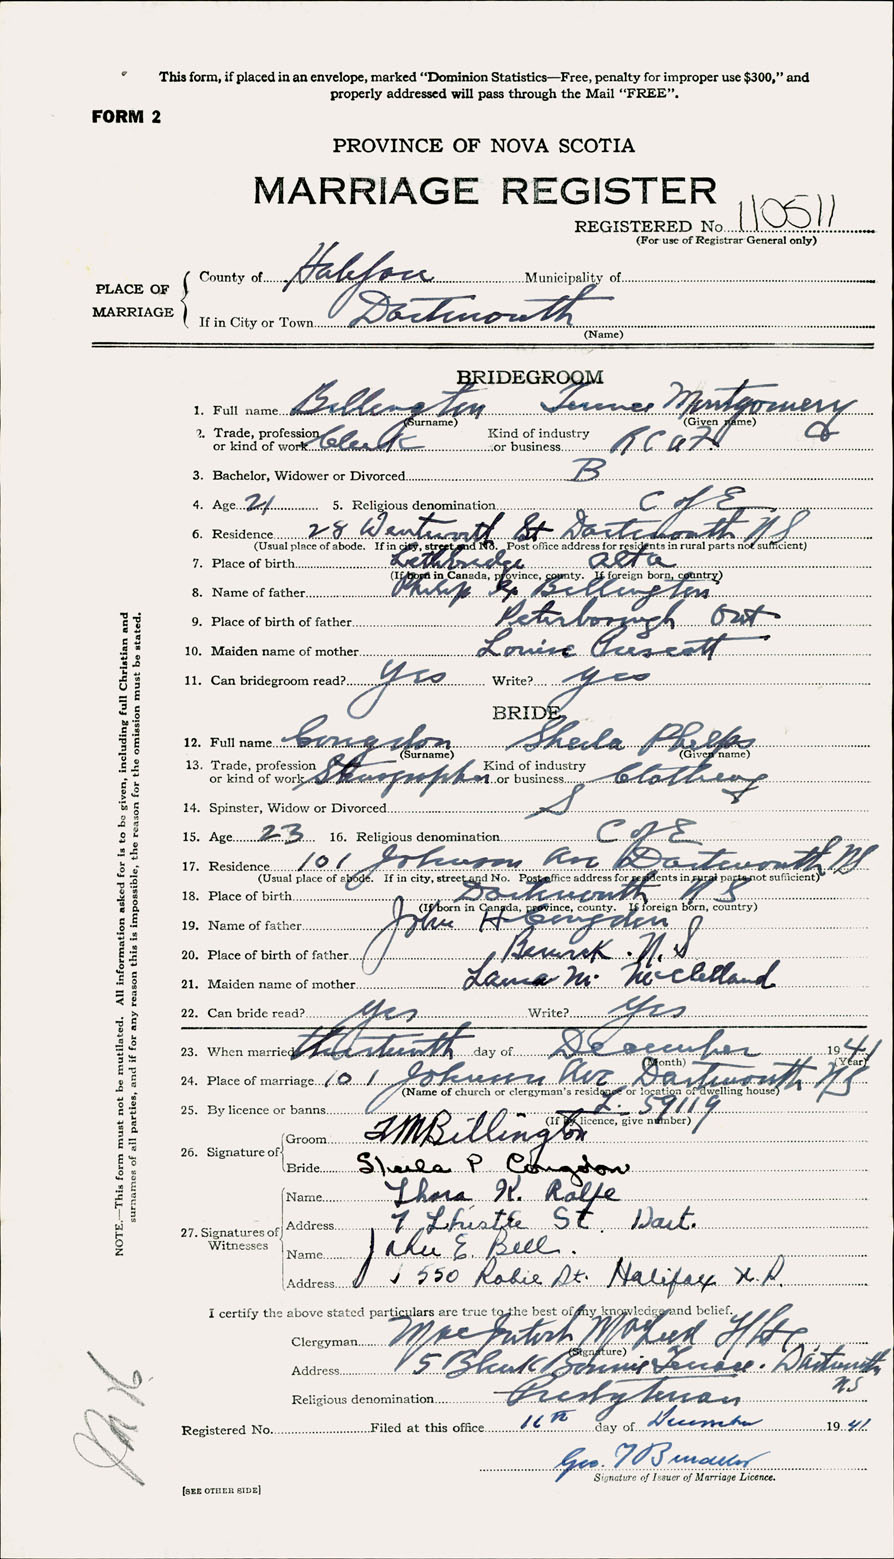 This form, if placed in an envelope, marked “Dominion Statistics—Free, penalty for improper use $300,” and
properly addressed will pass through the Mail “FREE”.
FORM 2
PROVINCE OF NOVA SCOTIA
MARRIAGE REGISTER
REGISTERED No. 110511
(For use of Registrar General only)
PLACE OF MARRIAGE
County of Halifax Municipality of
If in City or Town Dartmouth
(Name)
BRIDEGROOM
1. Full name Billington Terence Montgomery
(Surname) (Given name)
2. Trade, profession or kind of work Clerk Kind of industry or business R C A F
3. Bachelor, Widower or Divorced B
4. Age 21 5. Religious denomination C of E
6. Residence 28 Wentworth St Dartmouth N S
(Usual place of abode. If in city, street and No. Post office address for residents in rural parts not sufficient)
7. Place of birth Lethbridge Alta
(If born in Canada, province, county. If foreign born, country)
8. Name of father Philip Billington
9. Place of birth of father Peterborough Ont
10. Maiden name of mother Louise Prescott
11. Can bridegroom read? Yes Write? yes
BRIDE
12. Full name Congdon Sheila Phelps
(Surname) (Given name)
13. Trade, profession or kind of work Stenographer Kind of industry or business Clothing
14. Spinster, Widow or Divorced S
15. Age 23 16. Religious denomination C of E
17. Residence 101 Johnson Ave Dartmouth NS
(Usual place of abode. If in city, street and No. Post office address for residents in rural parts not sufficient)
18. Place of birth Dartmouth N S
(If born in Canada, province, county. If foreign born, country)
19. Name of father John H Congdon
20. Place of birth of father Berwick . N. S
21. Maiden name of mother Laura M. McClelland
22. Can bride read? Yes Write? Yes
23. When married thirteenth day of December 1941
(Month) (Year)
24. Place of marriage 101 Johnson Ave Dartmouth NS
(Name of church or clergyman's residence or location of dwelling house)
25. By licence or banns L. 59119
(If by licence, give number)
26. Signature of
Groom TMBillington
Bride Sheila P Congdon
27. Signatures of Witnesses
Name Thora K. Rolfe
Address 7 Thistle St. Dart.
Name John E. Bell.
Address 550 Robie St. Halifax N.S.
I certify the above stated particulars are true to the best of my knowledge and belief.
Clergyman MacIntosh MacLeod
(Signature)
Address 5 Bonnie Terrace. Dartmouth
NS
Religious denomination Presbyterian
Registered No. Filed at this office 16th day of December 1941
Geo.
Signature of Issuer of Marriage Licence.
[SEE OTHER SIDE]
NOTE.—This form must not be mutilated. All information asked for is to be given, including full Christian and
surnames of all parties, and if for any reason this is impossible, the reason for the omission must be stated.